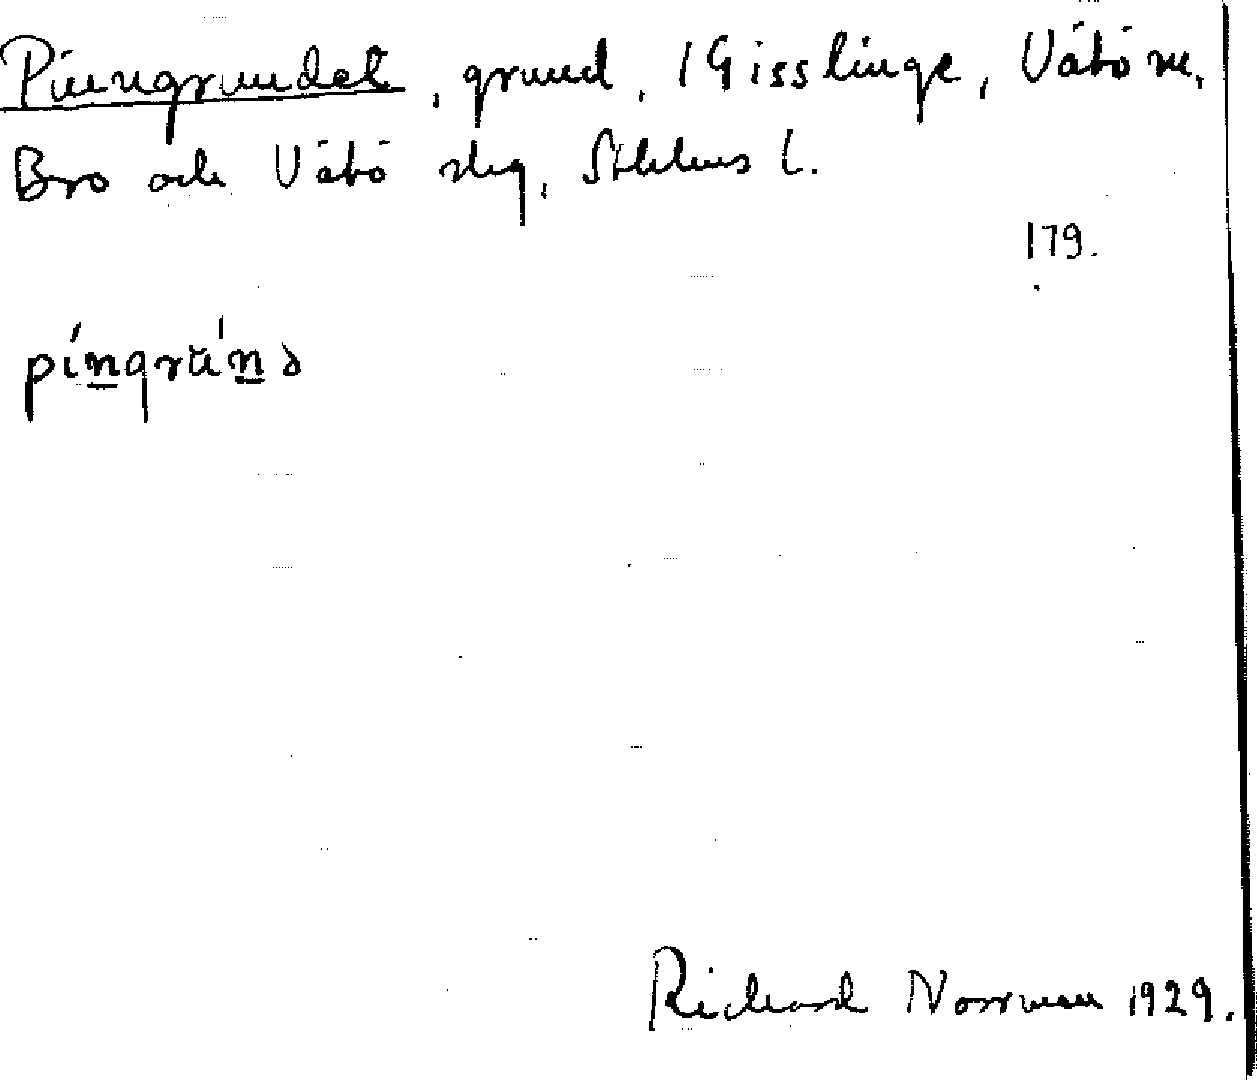 Pinngrundet, grund, i Gisslinge, Vätö sn,
Bro och Vätö skg, Sthlms l.
179.
pi´ngrŭ´nə
Richard Norrman 1929.